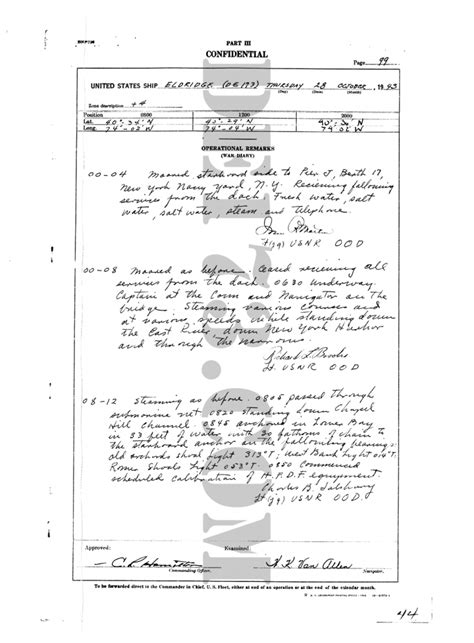 PART III
CONFIDENTIAL
Page 99
UNITED STATES SHIP ELDRIDGE (DE 173) THURSDAY 28 OCTOBER, 1943
(Day) (Date) (Month)
Zone description +4
Position 0800 1200 2000
Lat. 40°-34' N 40°-29' N
Long. 74°-02' W 74°-04' W
OPERATIONAL REMARKS
(WAR DIARY)
00-04 Moored, starboard side to Pier J, Berth 17,
New York Navy Yard, N.Y. Receiving following
services from the dock: Fresh water, salt
water, salt water, steam and telephone.
Lt(jg) USNR OOD
00-08 Moored as before. Ceased receiving all
services from the dock. 0630 Underway.
Captain at the Conn and Navigator on the
bridge. Steaming various courses and
at various speeds while standing down
the East River, down New York Harbor
and through the narrows.
Richard L. Brooks
Lt. USNR OOD
08-12 Steaming as before. 0805 passed through
submarine net 0820 standing down Chapel
Hill Channel. 0845 anchored in Lower Bay
in 33 feet of water with 30 fathoms of chain to
the starboard anchor on the following bearings:
old orchards shoal Light 313°T; West Bank Light
Romer Shoals Light 053°T. 0850 Commenced
scheduled calibration of H.F.D.F. equipment.
Charles B. Salsbury
Lt (jg) USNR OOD.
Approved: Examined:
Commanding Officer. H. K. Van Allen
Navigator.
To be forwarded direct to the Commander in Chief, U. S. Fleet, either at end of an operation or at the end of the calendar month.
DE173.COM